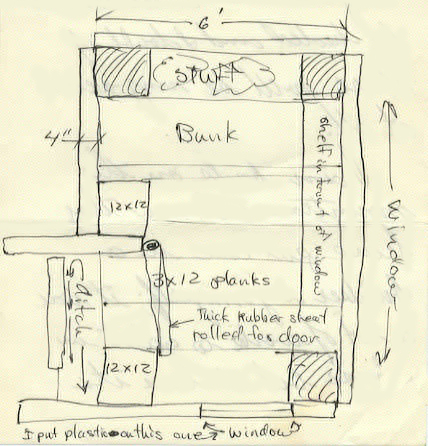 6'
(stuff)
Bunk
4"
12x12
shelf in front of window
window
3x12 planks
ditch
Thick rubber sheet
rolled for door
12x12
I put plastic on this one
window